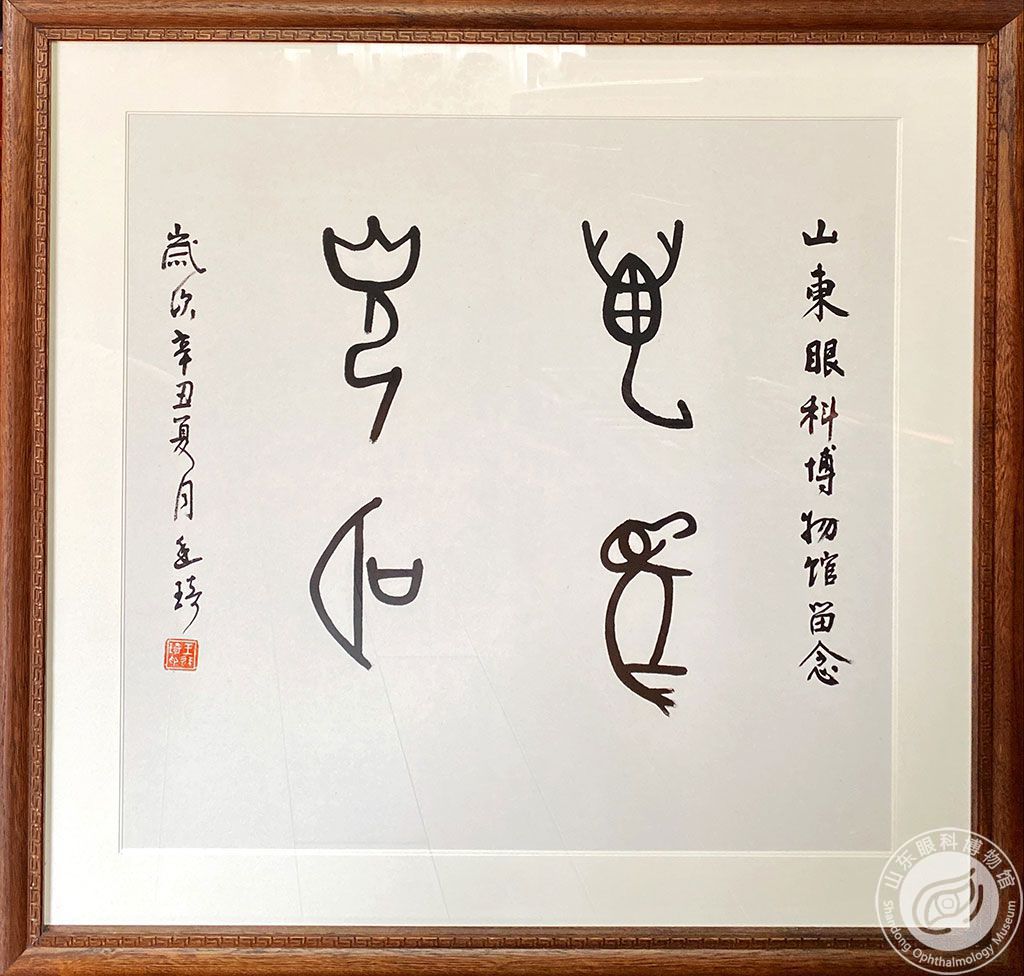 山東眼科博物馆留念
萬象
光明
歲次辛丑夏月 琦
山东眼科博物馆
Shandong Ophthalmology Museum